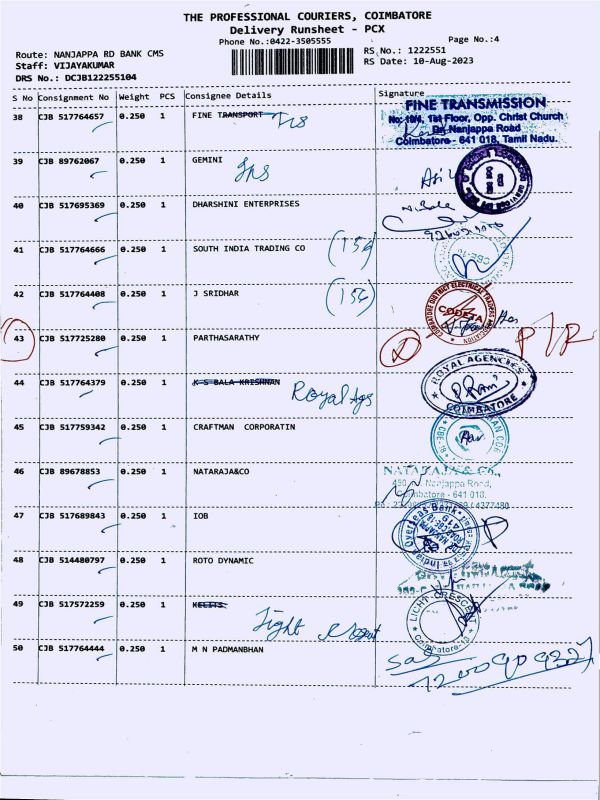 THE PROFESSIONAL COURIERS, COIMBATORE
Delivery Runsheet - PCX
Phone No.:0422-3505555
Page No.:4
Route: NANJAPPA RD BANK CMS
RS No.: 1222551
Staff: VIJAYAKUMAR
RS Date: 10-Aug-2023
DRS No.: DCJB122255104
S No Consignment No Weight PCS Consignee Details Signature
38 CJB 517764657 0.250 1 FINE TRANSPORT
FINE TRANSMISSION
No: 19/4, 1st Floor, Opp. Christ Church
Dr. Nanjappa Road
Coimbatore - 641 018, Tamil Nadu.
39 CJB 89762067 0.250 1 GEMINI
40 CJB 517695369 0.250 1 DHARSHINI ENTERPRISES
41 CJB 517764666 0.250 1 SOUTH INDIA TRADING CO (156)
42 CJB 517764408 0.250 1 J SRIDHAR (156)
COIMBATORE DISTRICT ELECTRICAL TRADERS ASSOCIATION
CODETA
43 CJB 517725280 0.250 1 PARTHASARATHY
44 CJB 517764379 0.250 1 K S BALA KRISHNAN Royal Ags
ROYAL AGENCIES
COIMBATORE
45 CJB 517759342 0.250 1 CRAFTMAN CORPORATIN
46 CJB 89678853 0.250 1 NATARAJA&CO
NATARAJA & Co.,
450 Nanjappa Road,
Coimbatore - 641 018.
47 CJB 517689843 0.250 1 IOB
Indian Overseas Bank
48 CJB 514480797 0.250 1 ROTO DYNAMIC
49 CJB 517572259 0.250 1 KELITS
Light
LIGHT CRESCENT
Coimbatore-18
50 CJB 517764444 0.250 1 M N PADMANBHAN